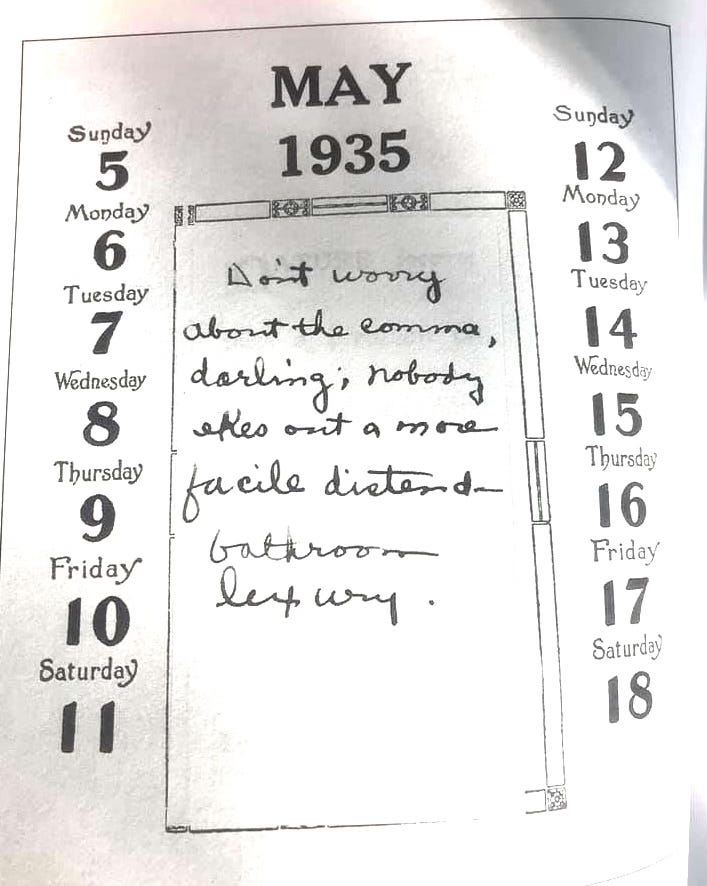 MAY
1935
Sunday
5
Monday
6
Tuesday
7
Wednesday
8
Thursday
9
Friday
10
Saturday
11
Don't worry
about the comma,
darling; nobody
ekes out a more
facile distend-
bathroom
luxury.
Sunday
12
Monday
13
Tuesday
14
Wednesday
15
Thursday
16
Friday
17
Saturday
18